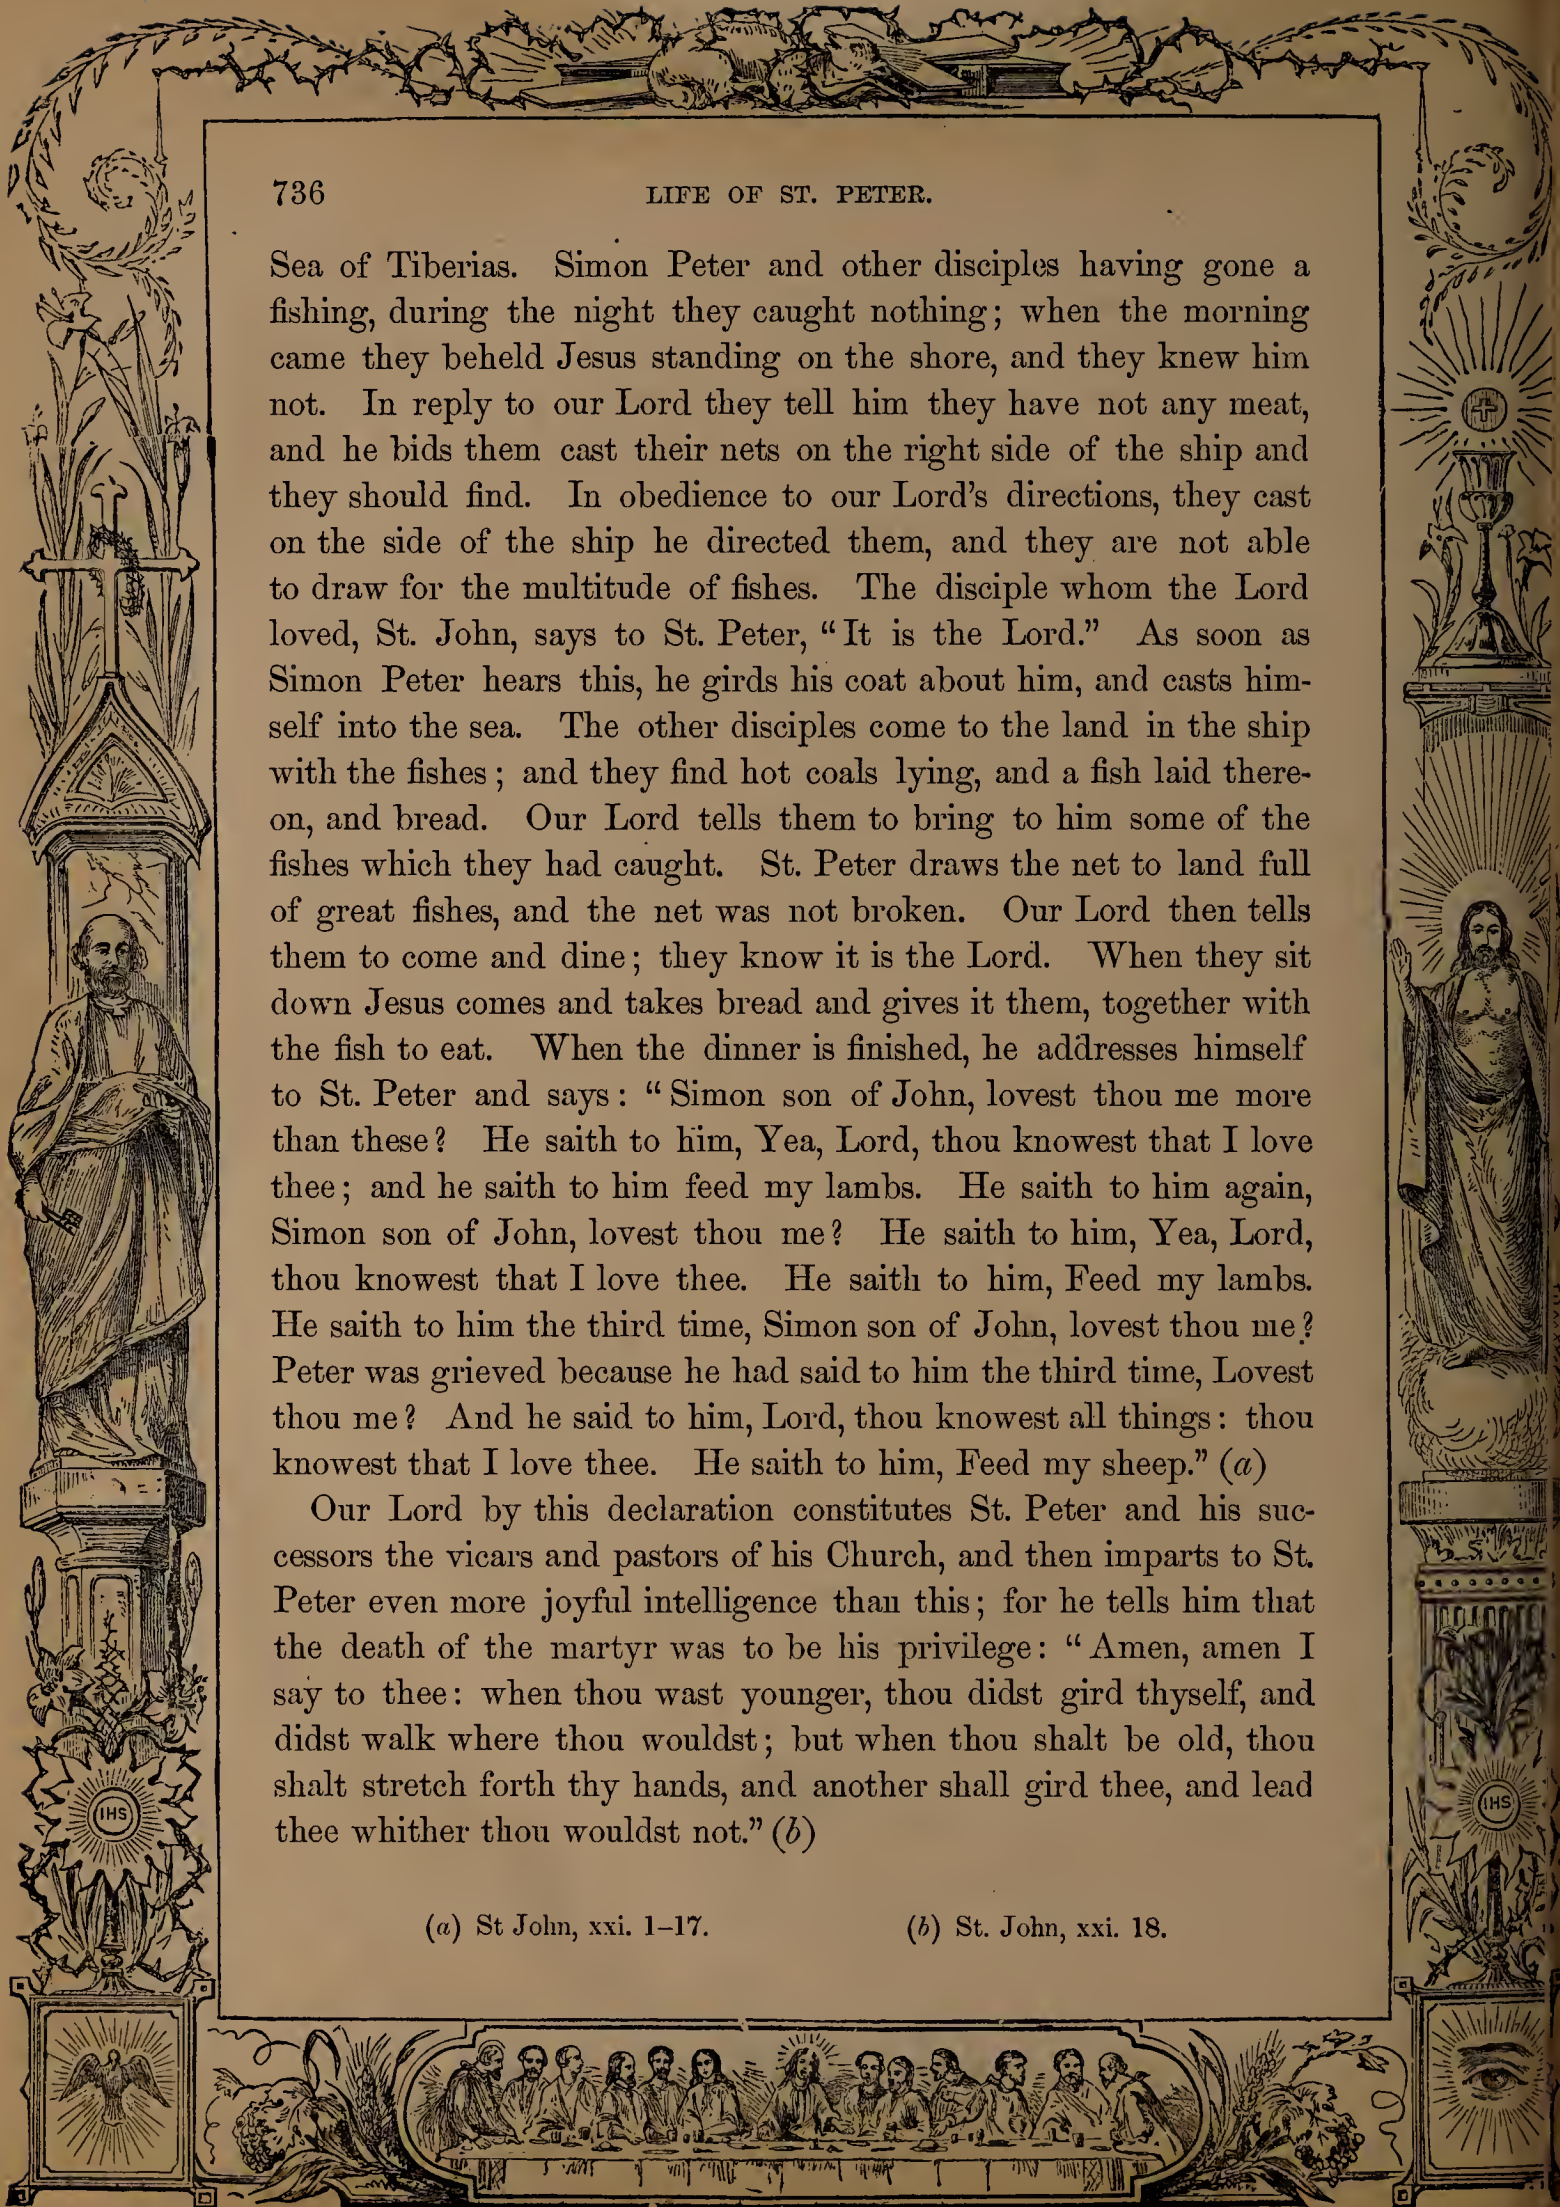 736 LIFE OF ST. PETER.
Sea of Tiberias. Simon Peter and other disciples having gone a
fishing, during the night they caught nothing; when the morning
came they beheld Jesus standing on the shore, and they knew him
not. In reply to our Lord they tell him they have not any meat,
and he bids them cast their nets on the right side of the ship and
they should find. In obedience to our Lord's directions, they cast
on the side of the ship he directed them, and they are not able
to draw for the multitude of fishes. The disciple whom the Lord
loved, St. John, says to St. Peter, “It is the Lord.” As soon as
Simon Peter hears this, he girds his coat about him, and casts him-
self into the sea. The other disciples come to the land in the ship
with the fishes; and they find hot coals lying, and a fish laid there-
on, and bread. Our Lord tells them to bring to him some of the
fishes which they had caught. St. Peter draws the net to land full
of great fishes, and the net was not broken. Our Lord then tells
them to come and dine; they know it is the Lord. When they sit
down Jesus comes and takes bread and gives it them, together with
the fish to eat. When the dinner is finished, he addresses himself
to St. Peter and says: “Simon son of John, lovest thou me more
than these? He saith to him, Yea, Lord, thou knowest that I love
thee; and he saith to him feed my lambs. He saith to him again,
Simon son of John, lovest thou me? He saith to him, Yea, Lord,
thou knowest that I love thee. He saith to him, Feed my lambs.
He saith to him the third time, Simon son of John, lovest thou me?
Peter was grieved because he had said to him the third time, Lovest
thou me? And he said to him, Lord, thou knowest all things: thou
knowest that I love thee. He saith to him, Feed my sheep.” (a)
Our Lord by this declaration constitutes St. Peter and his suc-
cessors the vicars and pastors of his Church, and then imparts to St.
Peter even more joyful intelligence than this; for he tells him that
the death of the martyr was to be his privilege: “Amen, amen I
say to thee: when thou wast younger, thou didst gird thyself, and
didst walk where thou wouldst; but when thou shalt be old, thou
shalt stretch forth thy hands, and another shall gird thee, and lead
thee whither thou wouldst not.” (b)
(a) St John, xxi. 1–17. (b) St. John, xxi. 18.
IHS
IHS